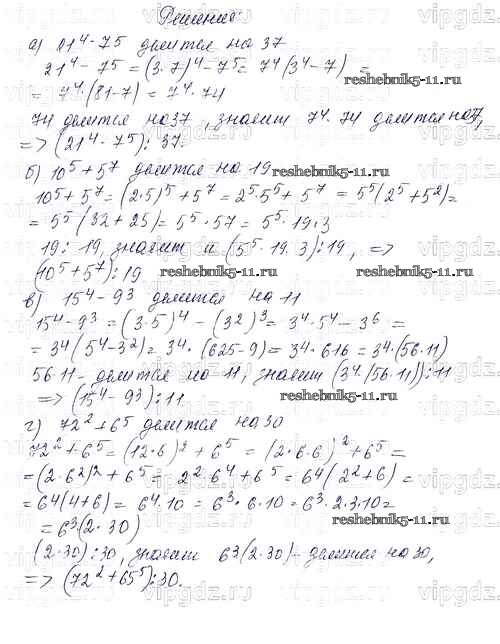 Решение:
а) 21⁴ - 7⁵ делится на 37
21⁴ - 7⁵ = (3·7)⁴ - 7⁵ = 7⁴(3⁴ - 7) =
= 7⁴·(81-7) = 7⁴·74
74 делится на 37, значит 7⁴·74 делится на 37,
=> (21⁴ - 7⁵) : 37.
б) 10⁵ + 5⁷ делится на 19
10⁵ + 5⁷ = (2·5)⁵ + 5⁷ = 2⁵·5⁵ + 5⁷ = 5⁵(2⁵ + 5²) =
= 5⁵(32 + 25) = 5⁵·57 = 5⁵·19·3
19 : 19, значит и (5⁵·19·3) : 19, =>
(10⁵ + 5⁷) : 19
в) 15⁴ - 9³ делится на 11
15⁴ - 9³ = (3·5)⁴ - (3²)³ = 3⁴·5⁴ - 3⁶ =
= 3⁴(5⁴ - 3²) = 3⁴·(625 - 9) = 3⁴·616 = 3⁴·(56·11)
56·11 - делится на 11, значит (3⁴(56·11)) : 11
=> (15⁴ - 9³) : 11
г) 72² + 6⁵ делится на 30
72² + 6⁵ = (12·6)² + 6⁵ = (2·6·6)² + 6⁵ =
= (2·6²)² + 6⁵ = 2²·6⁴ + 6⁵ = 6⁴(2² + 6) =
= 6⁴(4 + 6) = 6⁴·10 = 6³·6·10 = 6³·2·3·10 =
= 6³(2·30)
(2·30) : 30, значит 6³(2·30) - делится на 30,
=> (72² + 65⁵) : 30.
vipgdz.ru
reshebnik5-11.ru